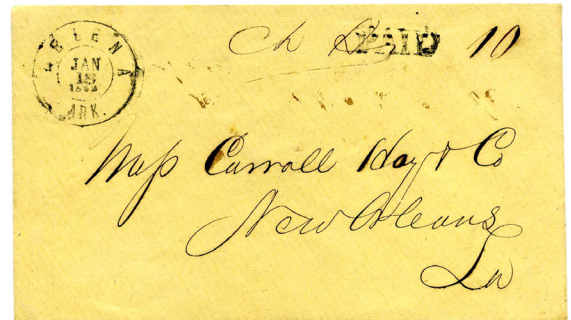 HELENA
JAN
18
ARK.
Ch PAID 10
Mess Carroll Hoy & Co
New Orleans
La